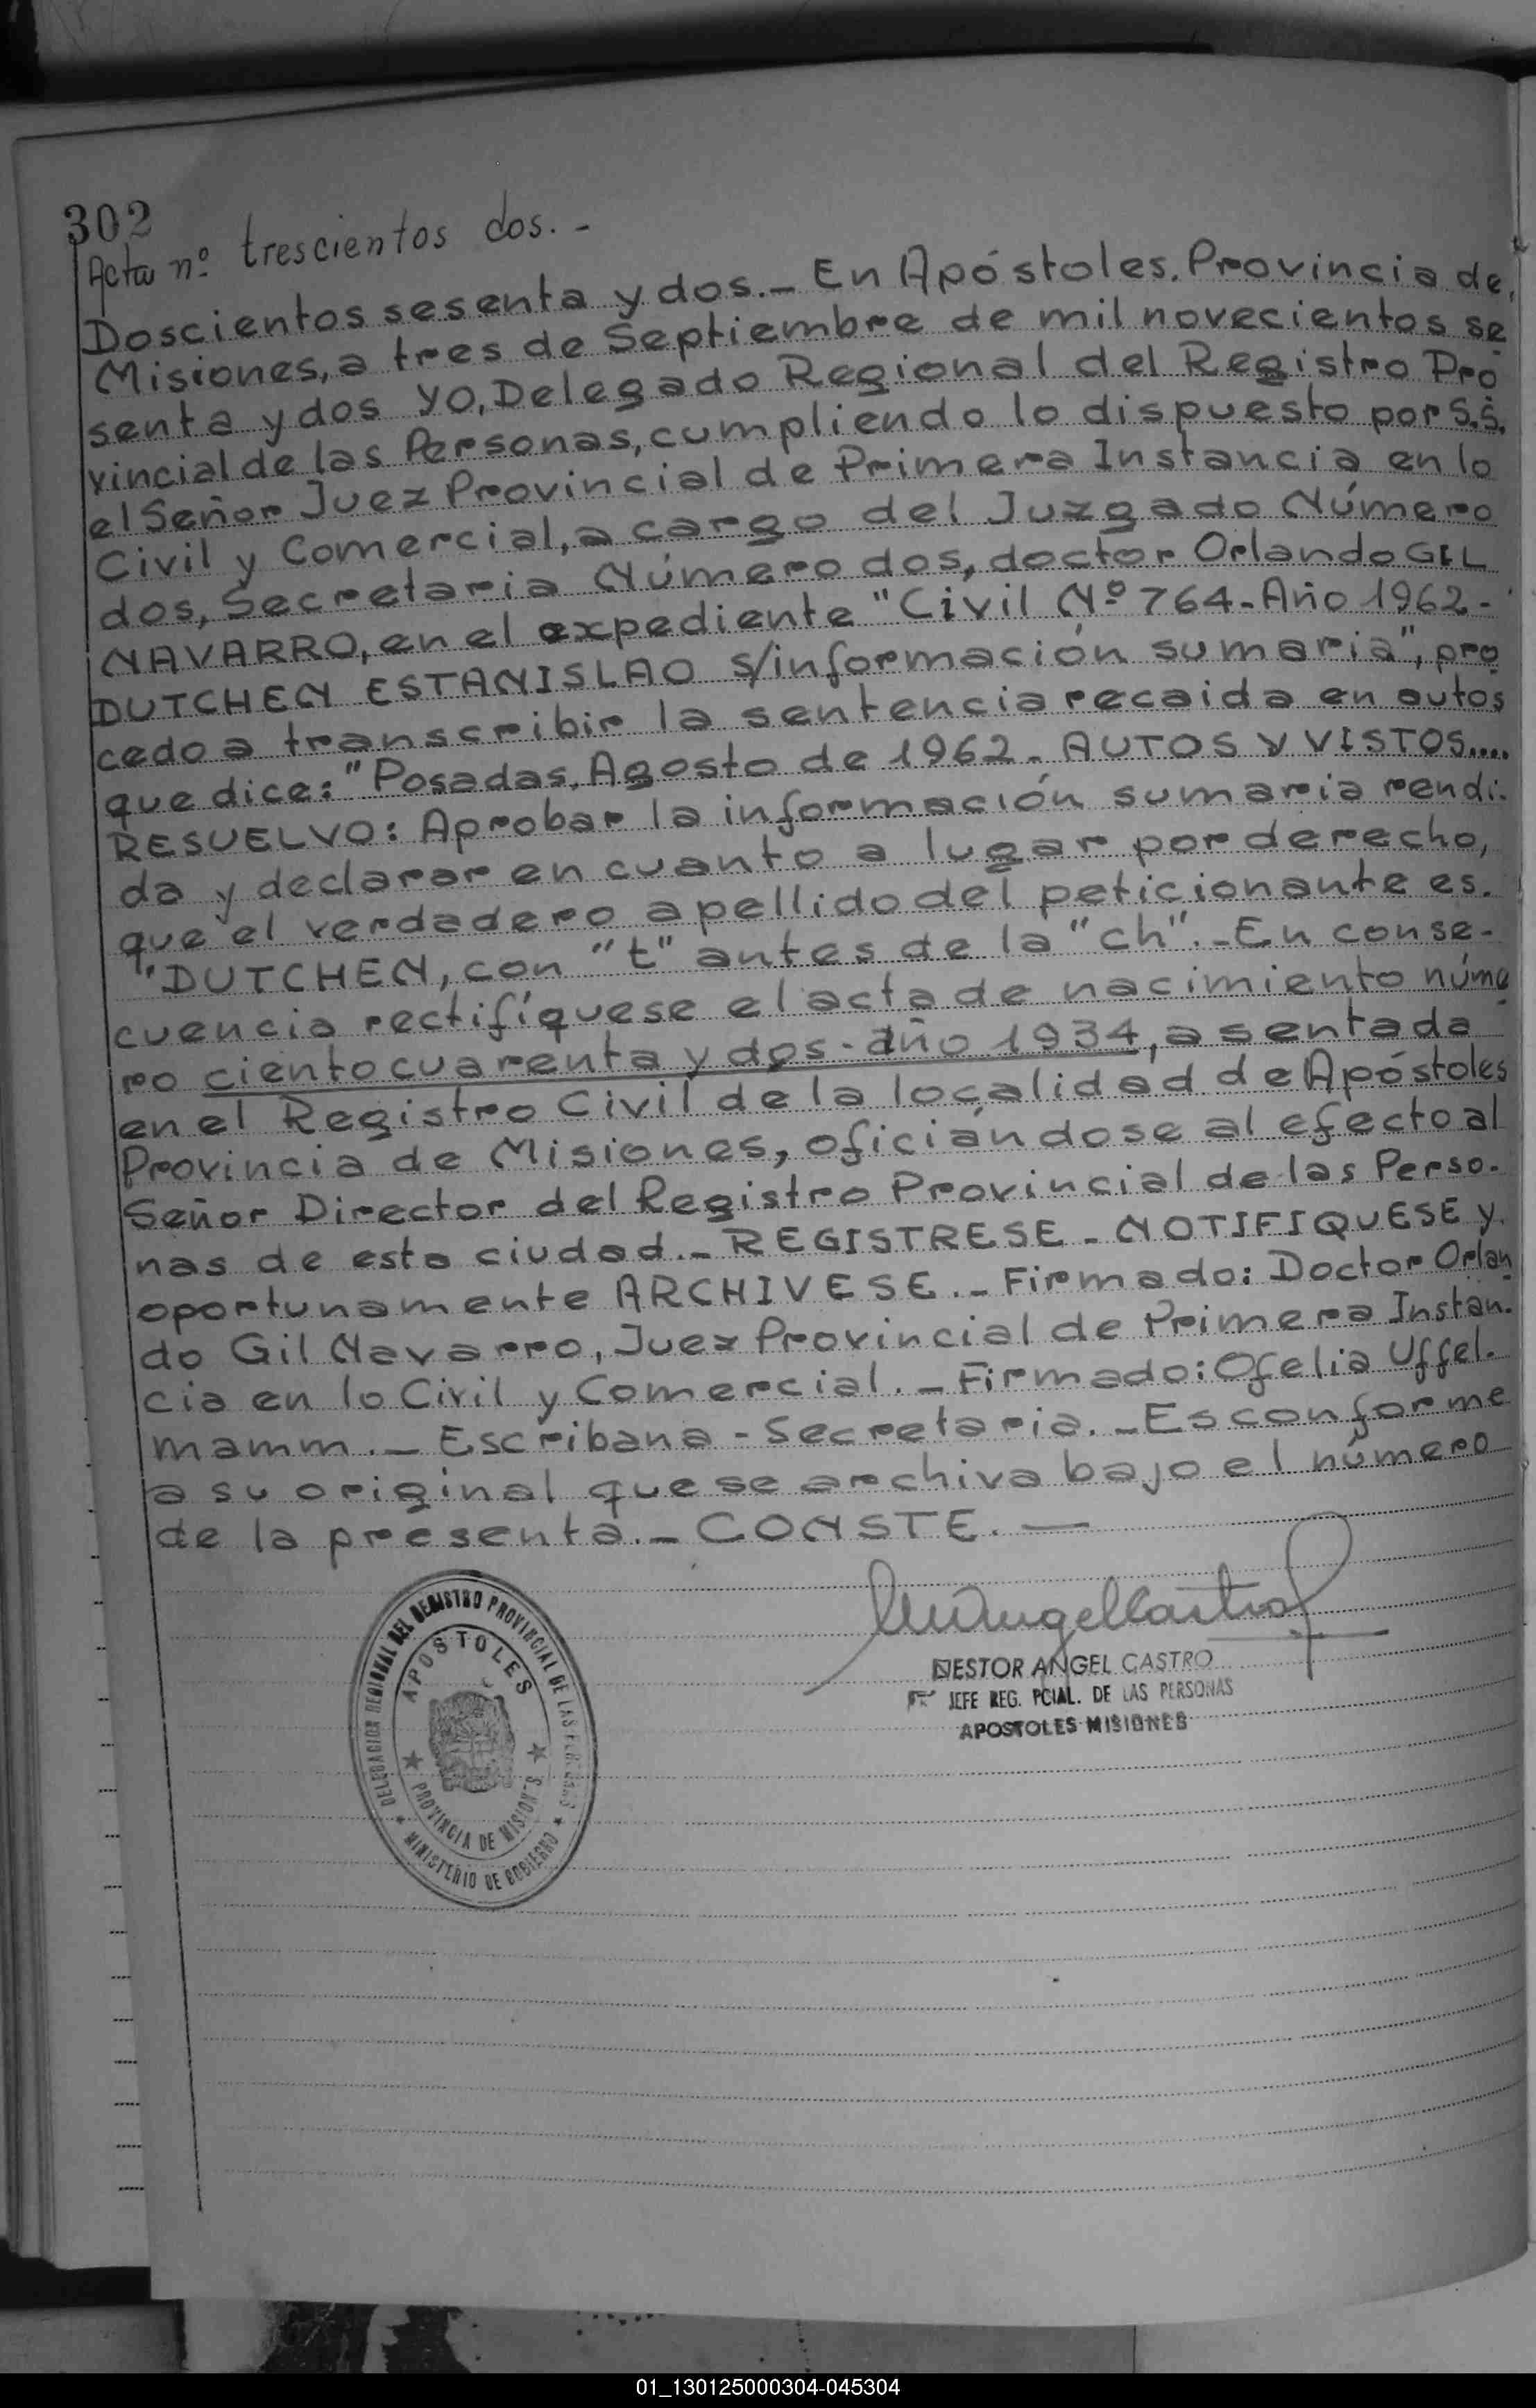 302
Acta nº trescientos dos.-
Doscientos sesenta y dos.- En Apóstoles, Provincia de,
Misiones, a tres de Septiembre de mil novecientos se
senta y dos YO, Delegado Regional del Registro Pro
vincial de las Personas, cumpliendo lo dispuesto por S.S.
el Señor Juez Provincial de Primera Instancia en lo
Civil y Comercial, a cargo del Juzgado Número
dos, Secretaria Número dos, doctor Orlando GIL
NAVARRO, en el expediente "Civil Nº 764-Año 1962-
DUTCHEN ESTANISLAO S/información sumaria", pro
cedo a transcribir la sentencia recaida en autos
que dice: "Posadas, Agosto de 1962.- AUTOS Y VISTOS....
RESUELVO: Aprobar la información sumaria rendi-
da y declarar en cuanto a lugar por derecho,
que el verdadero apellido del peticionante es.
"DUTCHEN, con "t" antes de la "ch".-En conse-
cuencia rectifíquese el acta de nacimiento núme
ro ciento cuarenta y dos - año 1934, asentada
en el Registro Civil de la localidad de Apóstoles
Provincia de Misiones, oficiándose al efecto al
Señor Director del Registro Provincial de las Perso-
nas de esta ciudad.- REGISTRESE - NOTIFIQUESE y
oportunamente ARCHIVESE.- Firmado: Doctor Orlan
do Gil Navarro, Juez Provincial de Primera Instan-
cia en lo Civil y Comercial.- Firmado: Ofelia Uffel-
mamm.- Escribana - Secretaria.-Es conforme
a su original que se archiva bajo el número
de la presenta.- CONSTE.-
NESTOR ANGEL CASTRO
JEFE REG. PCIAL. DE LAS PERSONAS
APOSTOLES MISIONES
DELEGACION REGIONAL DEL REGISTRO PROVINCIAL DE LAS PERSONAS
APOSTOLES
PROVINCIA DE MISIONES
MINISTERIO DE GOBIERNO
01_130125000304-045304